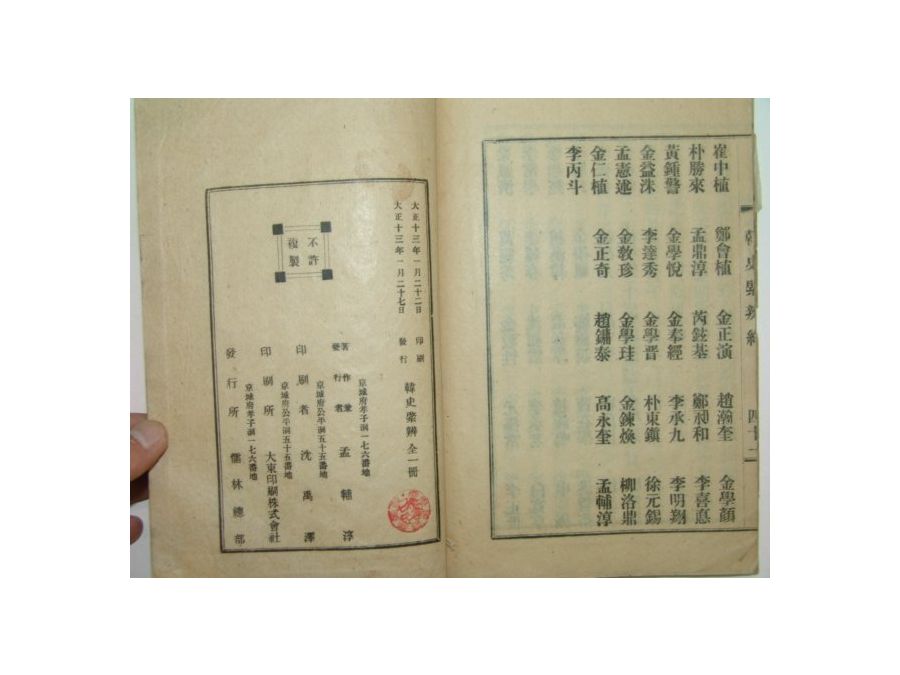 韓史綮辨 四十二
崔中植 鄭會植 金正演 趙瀚奎 金學顔
朴勝來 孟鼎淳 芮鍾基 鄭昶和 李喜悳
黃鍾警 金學悅 金奉經 李承九 李明翔
金益洙 李達秀 金學晋 朴東鎭 徐元錫
孟憲逑 金敎珍 金學珪 金鍊煥 柳洛鼎
金仁植 金正奇 趙鏞泰 高永奎 孟輔淳
李丙斗
大正十三年一月二十二日 印刷
大正十三年一月二十七日 發行
不許
複製
韓史綮辨 全一冊
京城府孝子洞一七六番地
著作兼
發行者 孟輔淳
京城府公平洞五十五番地
印刷者 沈禹澤
京城府公平洞五十五番地
印刷所 大東印刷株式會社
京城府孝子洞一七六番地
發行所 儒林總部